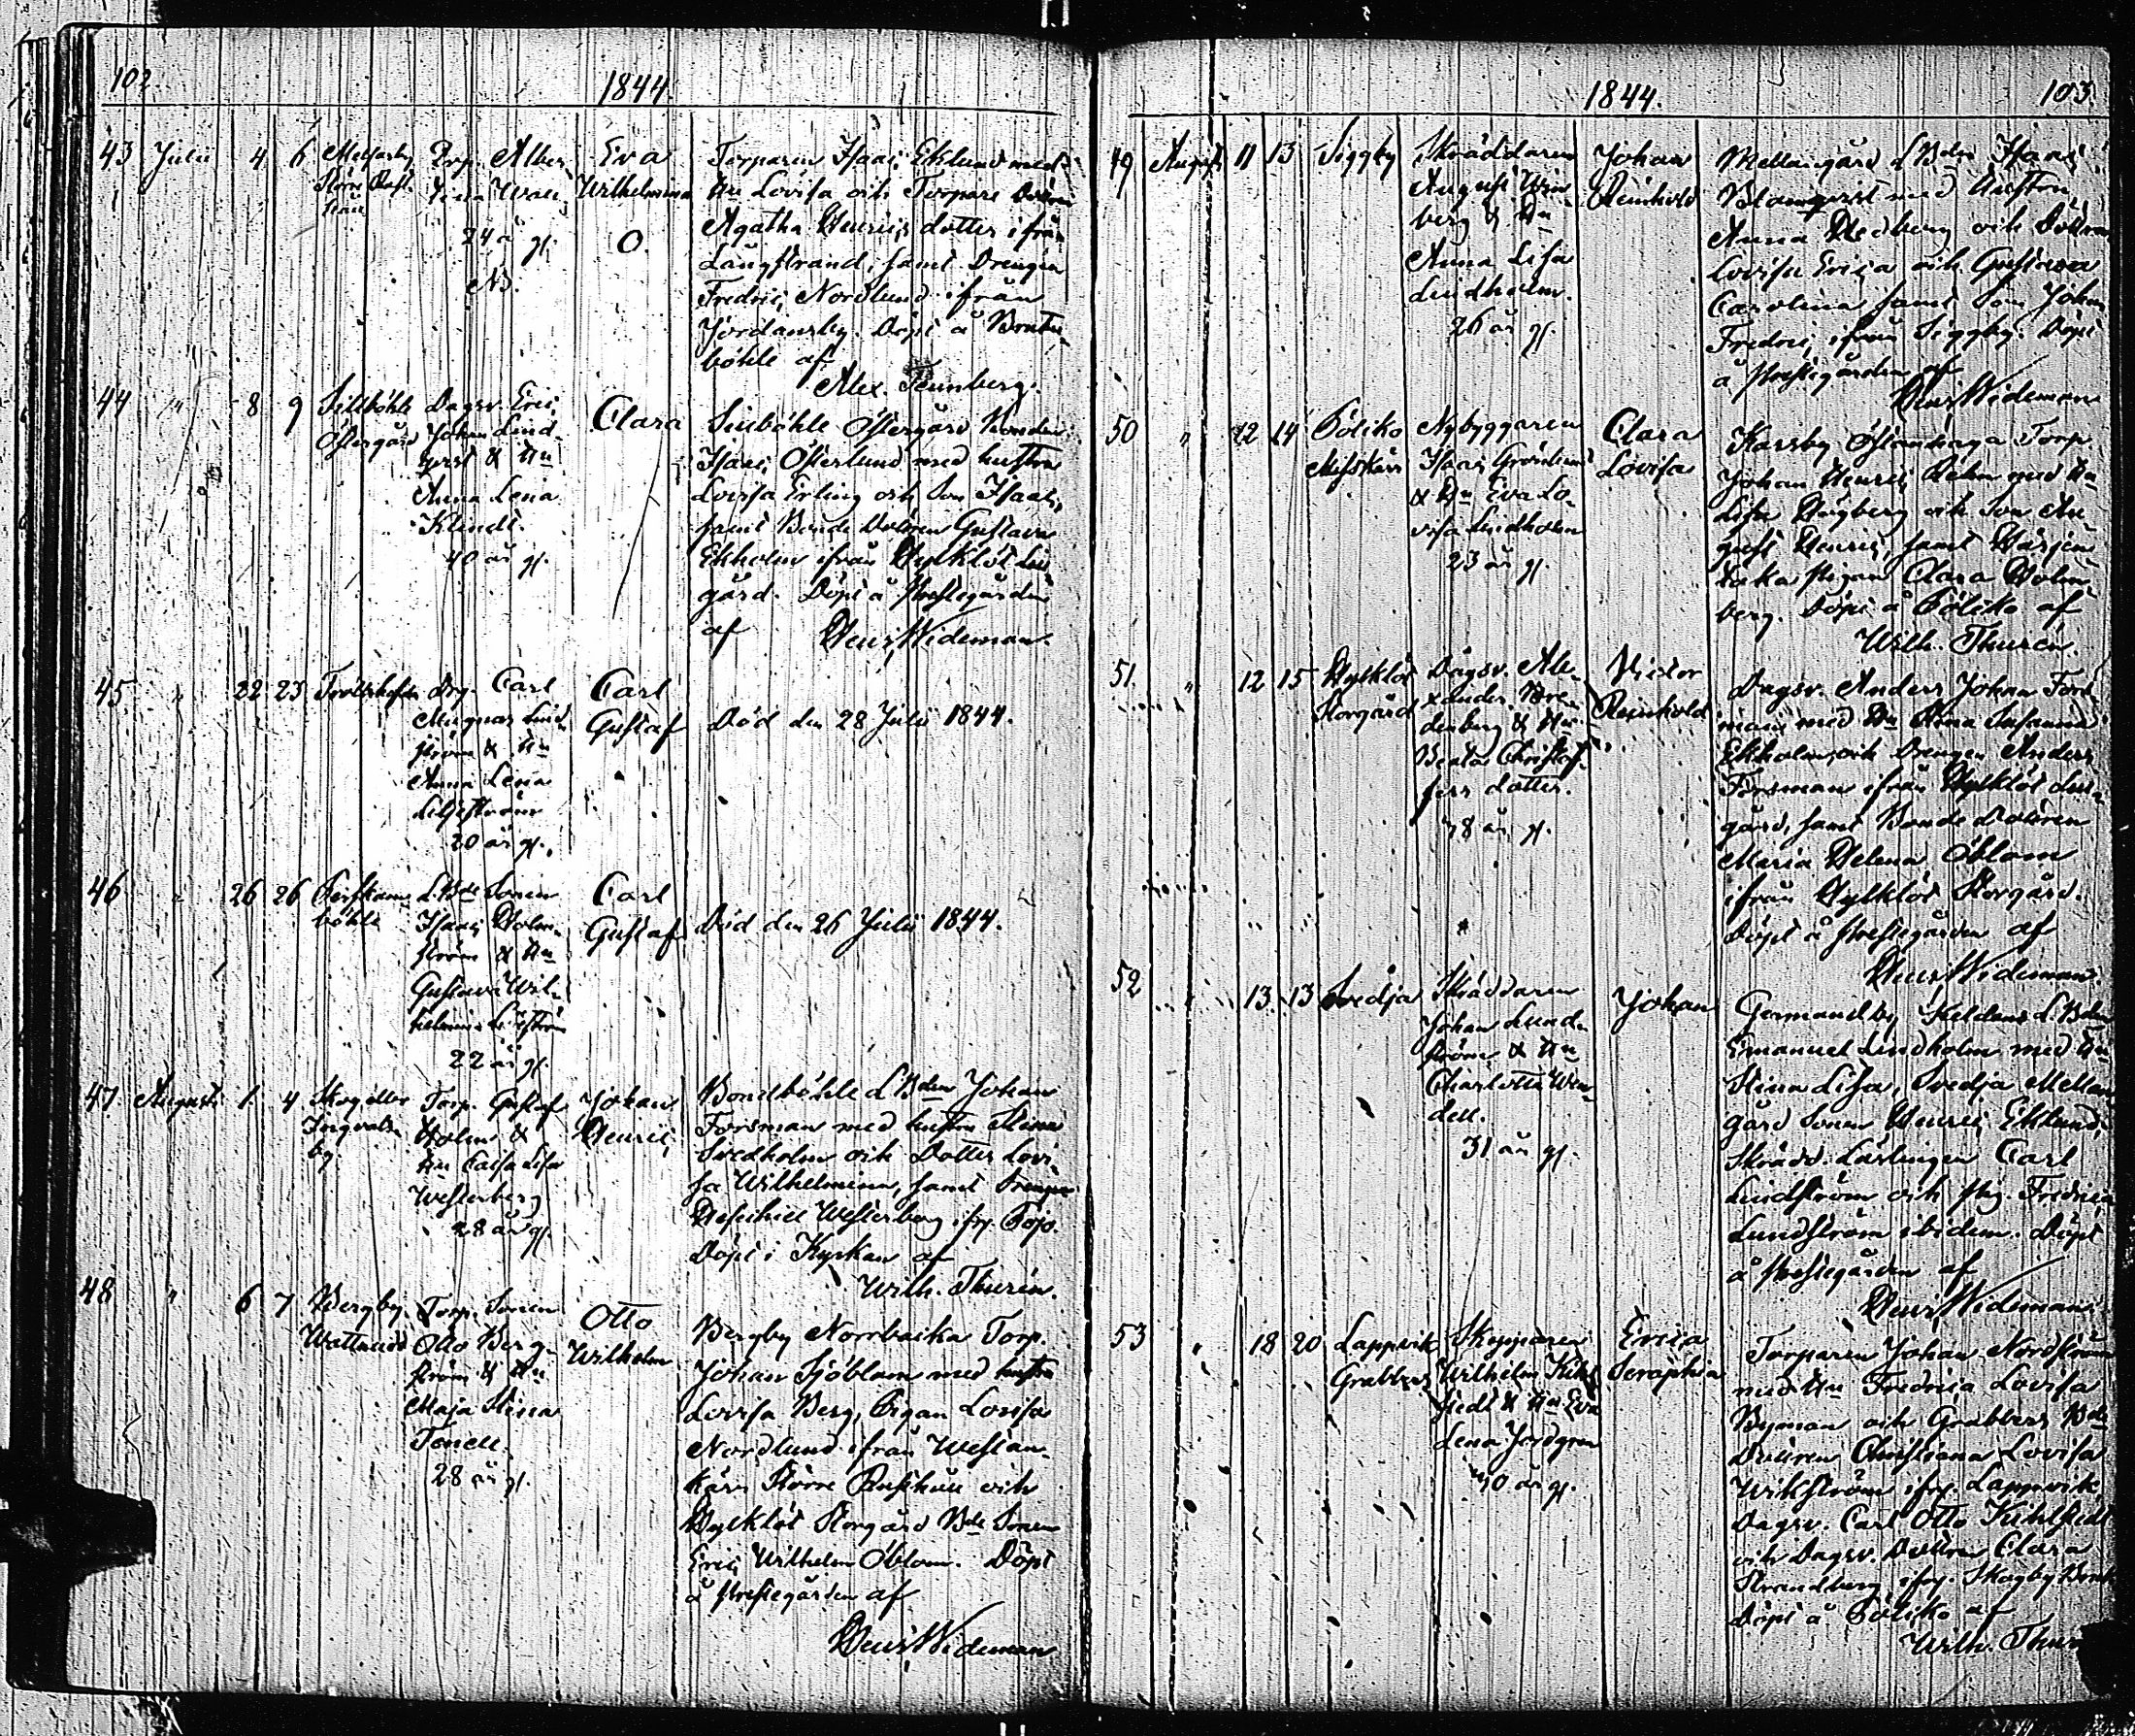 102
1844.
43 Julii 4 6
Torp. Alber
tina Wall
24 år gl.
NB.
Eva
Wilhelmina
O.
Torparen Isaac Eklund med
Hu Lovisa och Torpare Dottren
Agatha Henrics dotter ifrån
Långstrand, samt Drengen
Fredric Nordlund ifrån
Jordansby. Döpt å
böhle af
Alex. Tennberg.
44 " 8 9
Östergård
Dagsv. Eric
Johan Lind-
qvist & Hu
Anna Lena
40 år gl.
Clara
Östergård Bonden
Isaac Österlund med hustru
Lovisa Erling och Son Isaac,
samt Bonde Dottren Gustava
Ekholm ifrån Hylklöt Lill
gård. Döpt å Prestegården
af Henr. Wideman.
45 " 22 23
Drg. Carl
Magnus Lind
ström & Hu
Anna Lena
Liljeström
20 år gl.
Carl
Gustaf
Död den 28 Julii 1844.
46 " 26 26
böhle
L.Bde Sonen
Isaac Holm-
ström & Hu
Gustava Wil-
helmina
22 år gl.
Carl
Gustaf
Död den 26 Julii 1844.
47 Augusti 1 4
by
Torp. Gustaf
Holm &
Hu Caisa Lisa
Westerberg
28 år gl.
Johan
Henric
Bondböhle L.Bden Johan
Forsman med hustru Stina
Svedholm och Dotter Lovi-
sa Wilhelmina, samt Drengen
Westerberg ifr. Pojo.
Döpt i Kyrkan af
Wilh. Thurén.
48 " 6 7 Bergby
Torp. Sonen
Otto Berg-
ström & Hu
Maja Stina
28 år gl.
Otto
Wilhelm
Bergby Norrbacka Torp.
Johan Sjöblom med hustru
Lovisa Berg, Pigan Lovisa
Nordlund ifrån Westan-
kärr Större och
Hylklöt Storgård Bde Sonen
Eric Wilhelm Öblom. Döpt
å Prestegården af
Henr. Wideman
1844.
103.
49 Augusti 11 13 Siggby
Skräddaren
August Win-
berg & Hu
Anna Lisa
Lindholm.
26 år gl.
Johan
Reinhold
Mellangård L.Bden Isaac
Blomqvist med hustru
Anna Hedberg och Döttrarne
Lovisa Erica och Gustava
Carolina samt Son Johan
Fredric, ifrån Siggby. Döpt
å Prestegården af
Henr. Wideman
50 " 12 14
Nybyggaren
Isaac Grönlund
& Hu Eva Lo-
visa Lindholm
23 år gl.
Clara
Lovisa
Johan Henric Rehn med Hu
Lisa Högberg och Son Au-
gust Henric, samt
backa Pigan Clara Holm-
berg. Döpt å af
Wilh. Thurén.
51. " 12 15 Hylklöt
Storgård
Dagsv. Ale-
xander
& Hu
Beata Christof-
fers dotter.
Victor
Reinhold
Dagsv. Anders Johan Fors
man med Hu Anna Susanna
Ekholm, och Drengen Anders
Forsman ifrån Hylklöt Lill-
gård, samt Bonde Dottren
Maria Helena Öblom
ifrån Hylklöt Storgård.
Döpt å Prestegården af
Henr. Wideman.
52 " 13 13 Svedja
Skräddaren
Johan Lund-
ström & Hu
Charlotta Wen-
dell.
31 år gl.
Johan
Germundby L.Bden
Emanuel Lindholm med Hu
Stina Lisa, Svedja Mellan-
gård Sonen Henric Eklund,
Skrädd. Lärlingen Carl
Lindström och Pig. Fredrica
Lundström ibidem. Döpt
å Prestegården af
Henr. Wideman.
53 " 18 20 Lappvik
Skepparen
Wilhelm Kihl
stedt & Hu Eva
Lena Jordgren
40 år gl.
Erica
Seraphia
Torparen Johan Nordström
med Hu Fredrica Lovisa
Nyman och Grabbers Bde
Dottren Christiana Lovisa
Wikström ifr. Lappvik,
Dagsv. Carl Otto Kihlstedt
och Dagsv. Dottren Clara
Strandberg ifr. Skogby
Döpt å af
Wilh.